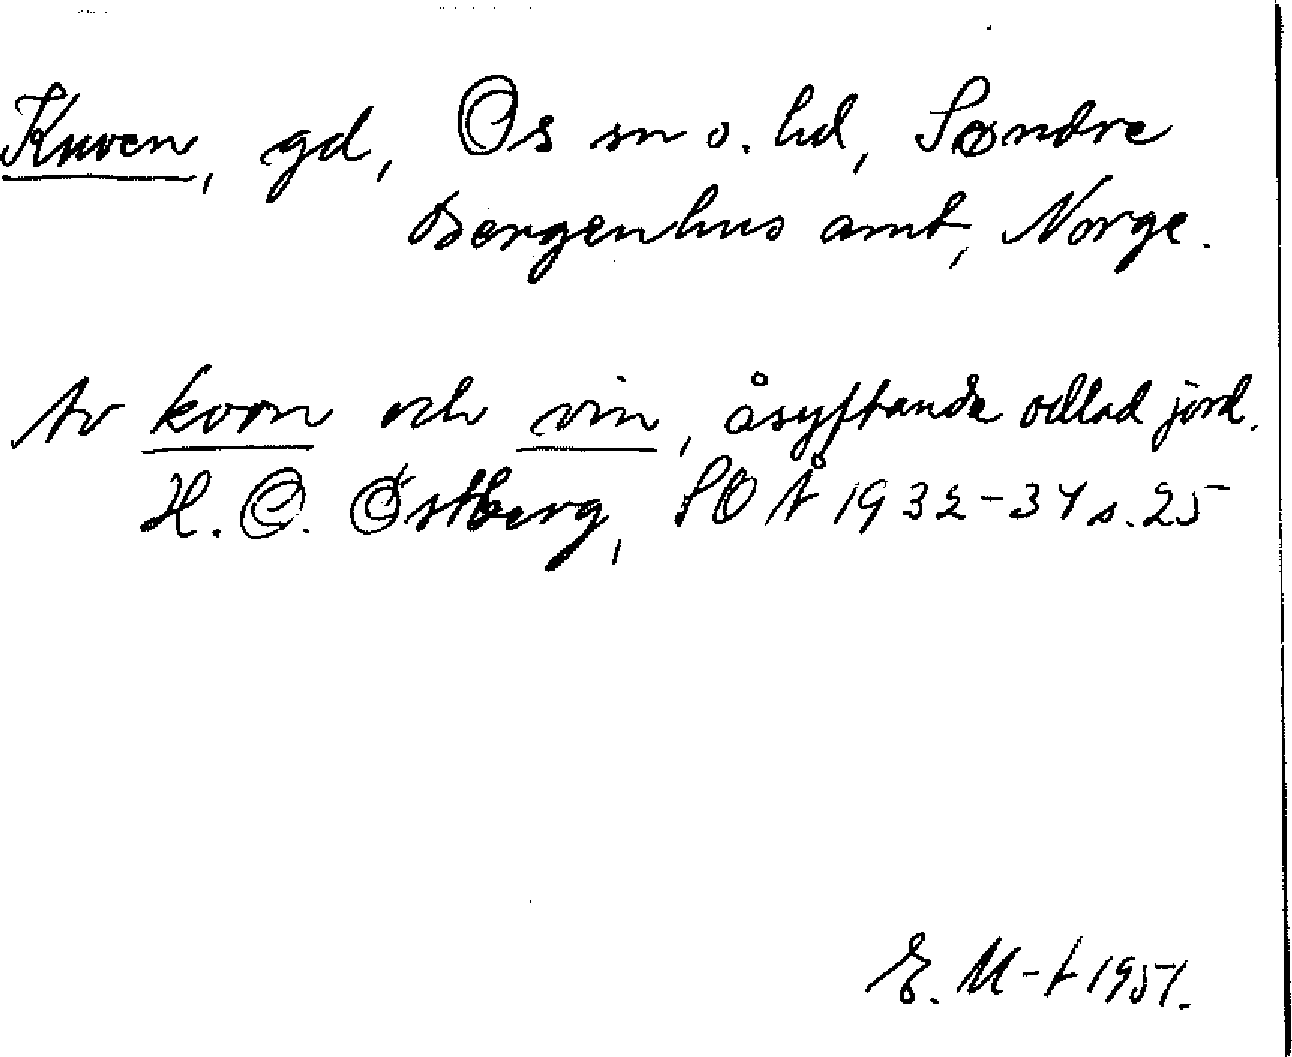 Kuven, gd, Os sn o. hd, Søndre
Bergenhus amt, Norge.
Av korn och vin, åsyftande odlad jord.
H. O. Östberg, SOÅ 1932-34 s. 25
E. M-t 1951.